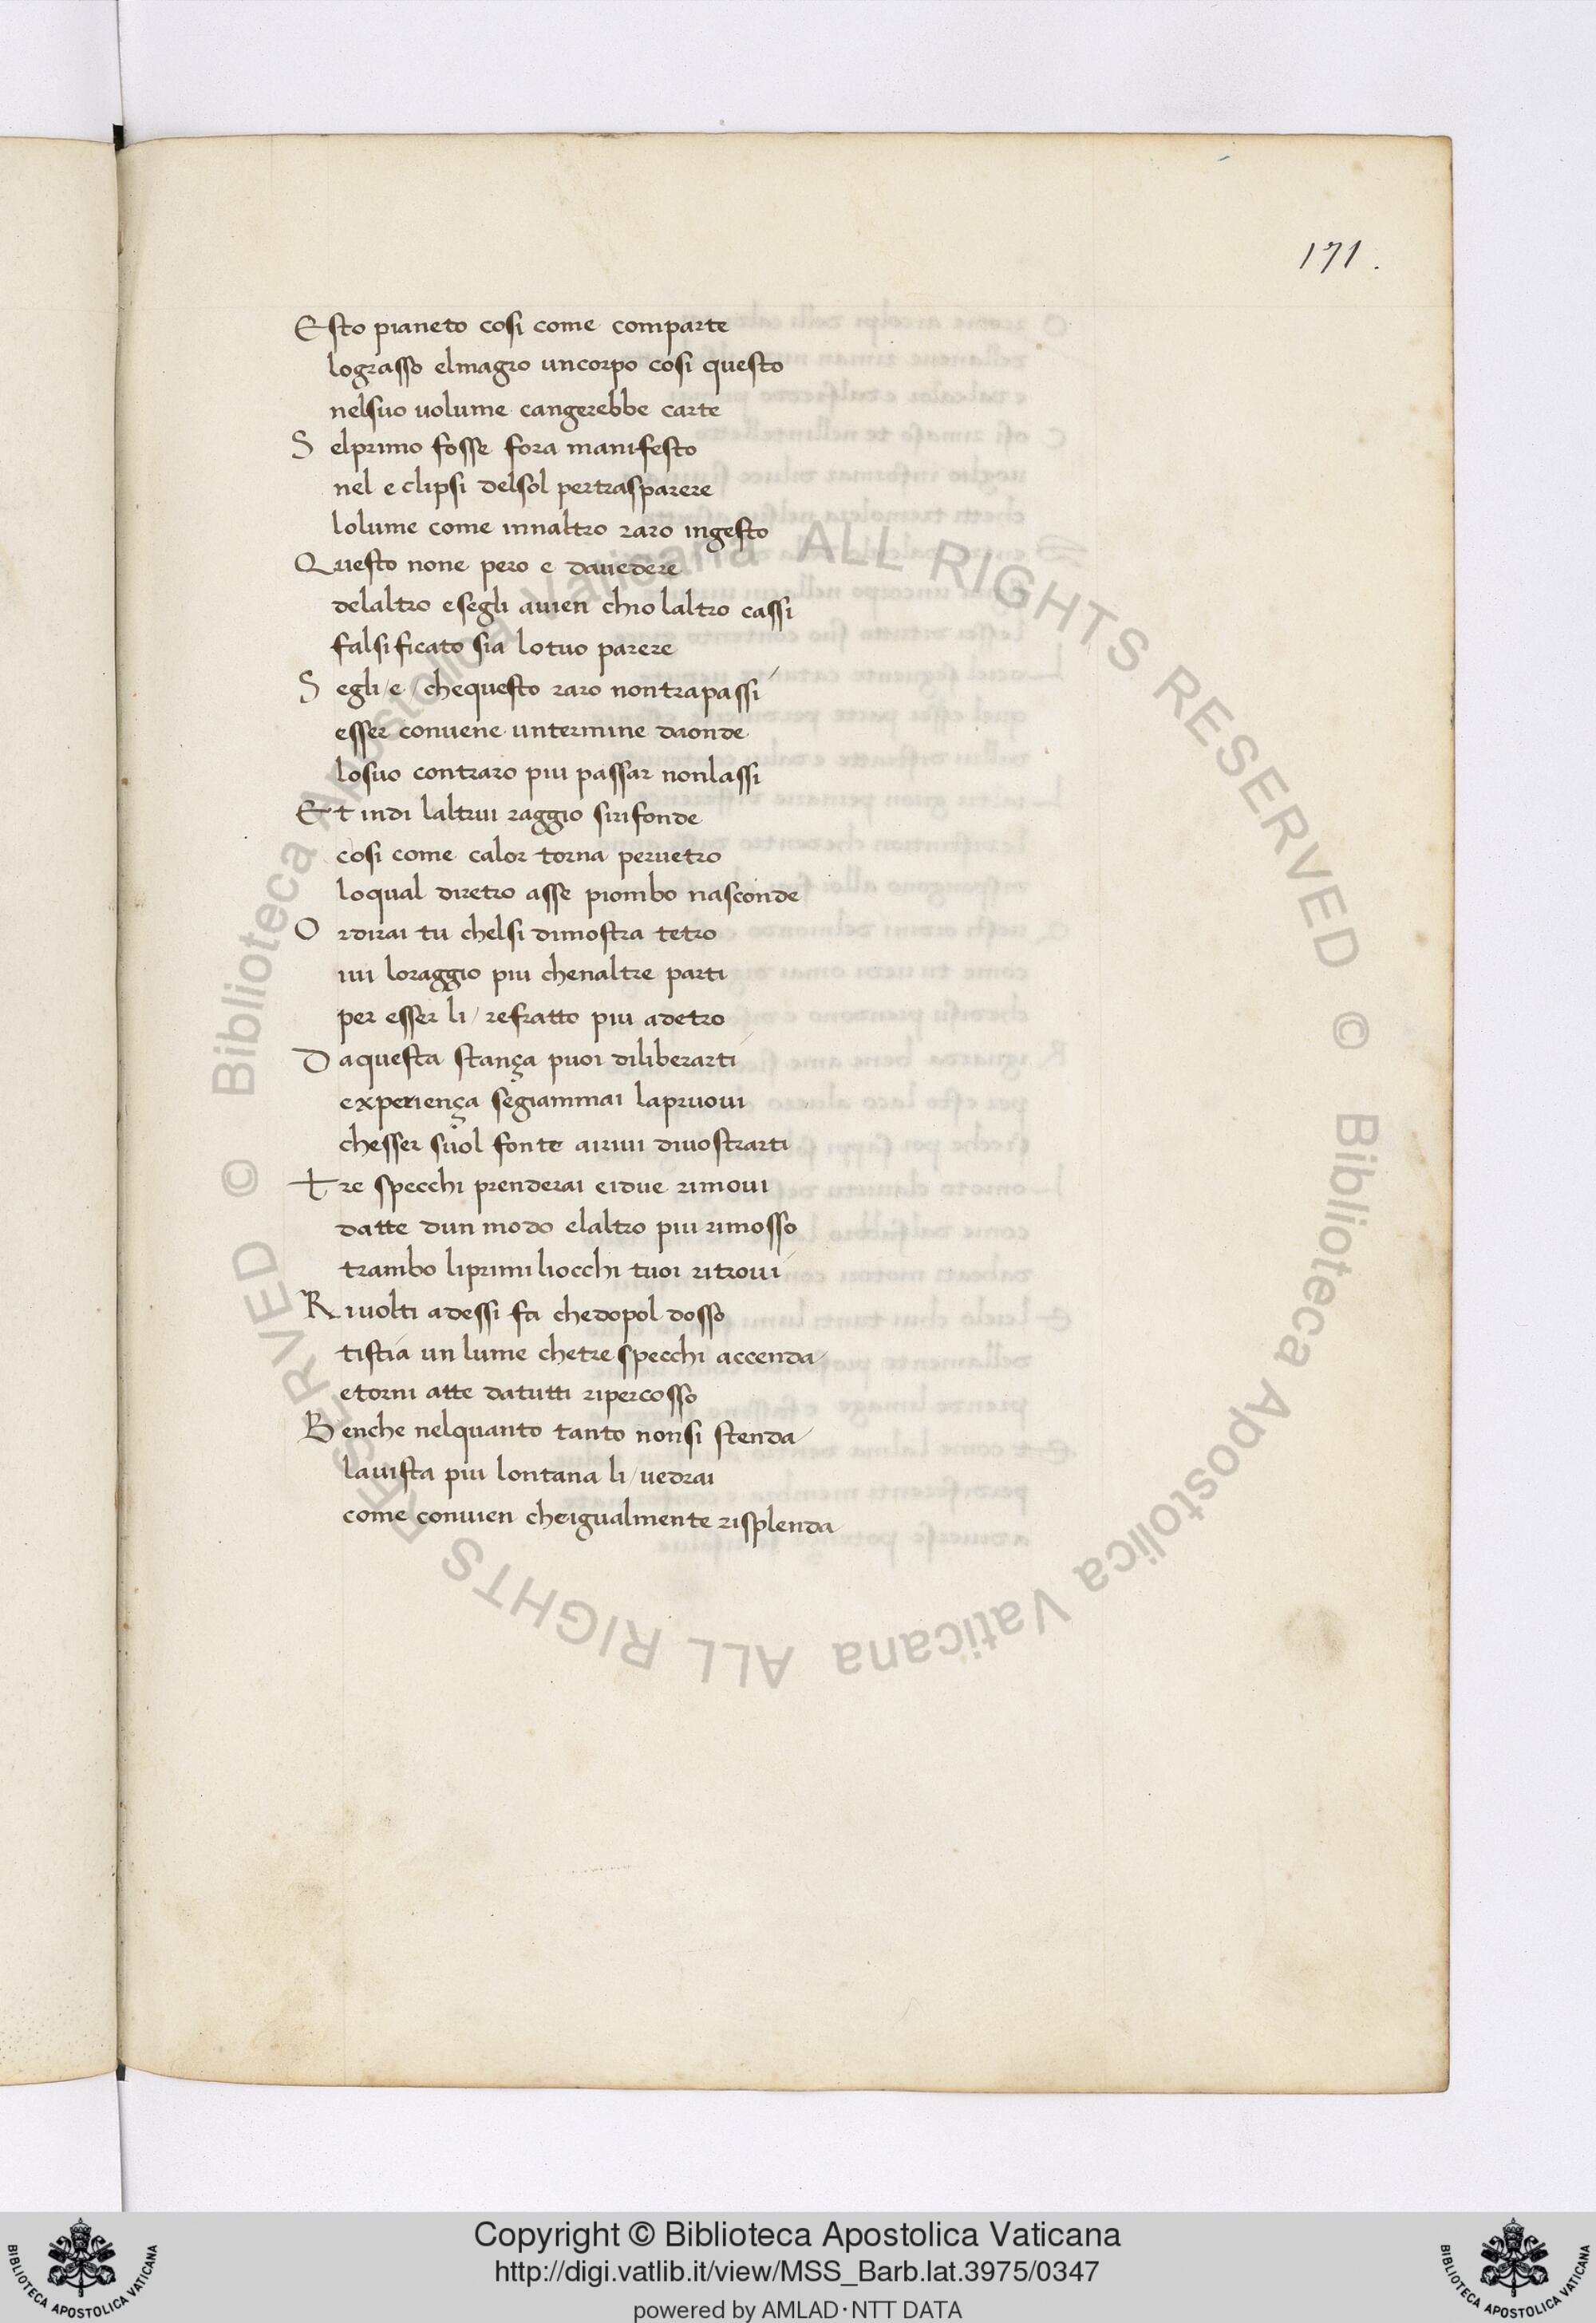 171.
Esto pianeto cosi come comparte
lograsso elmagro uncorpo cosi questo
nelsuo uolume cangerebbe carte
S elprimo fosse fora manifesto
nel e clipsi delsol pertrasparere
lolume come innaltro raro ingesto
Questo none pero e dauedere
delaltro esegli auien chio laltro cassi
falsificato sia lotuo parere
S egli/e/chequesto raro nontrapassi
esser conuene untermine daonde
losuo contraro piu passar nonlassi
Et indi laltrui raggio sirifonde
cosi come calor torna peruetro
loqual diretro asse piombo nasconde
O rdirai tu chelsi dimostra tetro
iui loraggio piu chenaltre parti
per esser li/refratto piu adetro
D aquesta stança puoi diliberarti
experiença segiammai lapruoui
chesser suol fonte airiui diuostrarti
tre specchi prenderai eidue rimoui
datte dun modo elaltro piu rimosso
trambo liprimi liocchi tuoi ritroui
R iuolti adessi fa chedopol dosso
tistia un lume chetre specchi accenda
etorni atte datutti ripercosso
Benche nelquanto tanto nonsi stenda
lauista piu lontana li/uedrai
come conuien cheigualmente risplenda
© Biblioteca Apostolica Vaticana ALL RIGHTS RESERVED
© Biblioteca Apostolica Vaticana ALL RIGHTS RESERVED
BIBLIOTECA APOSTOLICA VATICANA
Copyright © Biblioteca Apostolica Vaticana
http://digi.vatlib.it/view/MSS_Barb.lat.3975/0347
powered by AMLAD·NTT DATA
BIBLIOTECA APOSTOLICA VATICANA